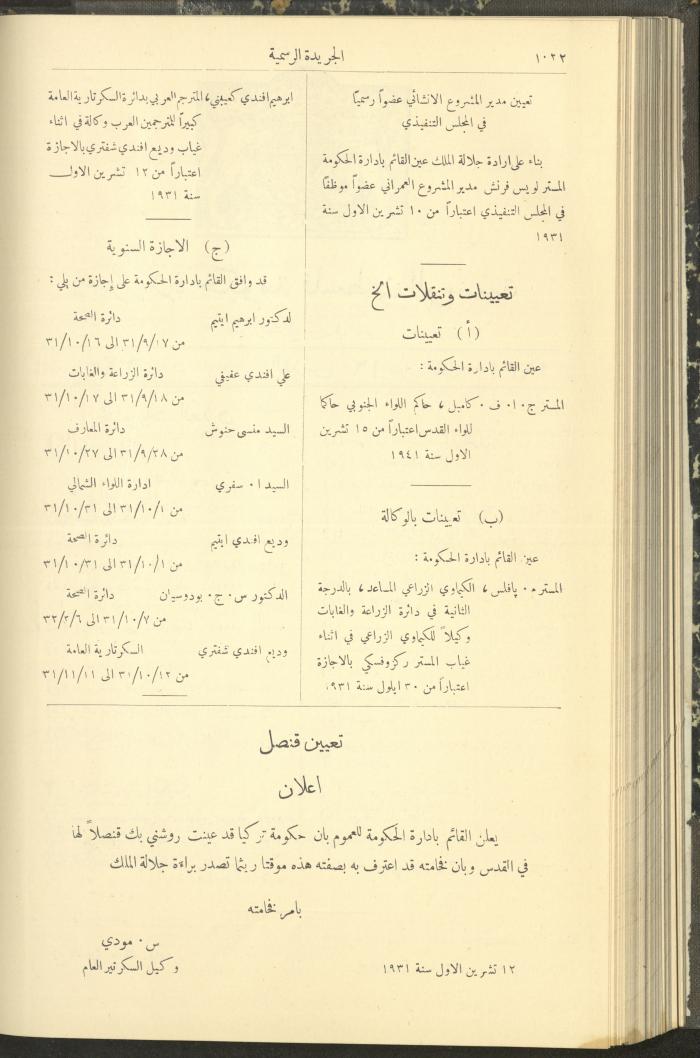 ١٠٢٢
الجريدة الرسمية
تعيين مدير المشروع الانشائي عضواً رسمياً
في المجلس التنفيذي
بناء على ارادة جلالة الملك عين القائم بادارة الحكومة
المستر لويس فرنش مدير المشروع العمراني عضواً موظفاً
في المجلس التنفيذي اعتباراً من ١٠ تشرين الاول سنة
١٩٣١
تعيينات وتنقلات الخ
(أ) تعيينات
عين القائم بادارة الحكومة :
المستر ج٠ا٠ ف٠ كامبل ، حاكم اللواء الجنوبي حاكما
للواء القدس اعتباراً من ١٥ تشرين
الاول سنة ١٩٤١
(ب) تعيينات بالوكالة
عين القائم بادارة الحكومة :
المستر ٠ پافلس ، الكيماوي الزراعي المساعد ، بالدرجة
الثانية في دائرة الزراعة والغابات
وكيلاً للكيماوي الزراعي في اثناء
غياب المستر ركزوفسكي بالاجازة
اعتباراً من ٣٠ ايلول سنة ٩٣١
ابرهيم افندي كعيبني ، المترجم العربي بدائرة السكرتارية العامة
كبيراً للمترجمين العرب وكالة في اثناء
غياب وديع افندي شفتري بالاجازة
اعتباراً من ١٢ تشرين الاول
سنة ١٩٣١
(ج) الاجازة السنوية
قد وافق القائم بادارة الحكومة على إجازة من يلي :
لدكتور ابرهيم ايتيم دائرة الصحة
من ٣١/٩/١٧ الى ٣١/١٠/١٦
علي افندي عفيفي دائرة الزراعة والغابات
من ٣١/٩/١٨ الى ٣١/١٠/١٧
السيد منسى حنوش دائرة المعارف
من ٣١/٩/٢٨ الى ٣١/١٠/٢٧
السيد ا٠ سفري ادارة اللواء الشمالي
من ٣١/١٠/١ الى ٣١/١٠/٣١
وديع افندي ايتيم دائرة الصحة
من ٣١/١٠/١ الى ٣١/١٠/٣١
الدكتور س٠ ج٠ بودوسيان دائرة الصحة
من ٣١/١٠/٧ الى ٣٢/٢/٦
وديع افندي شفتري السكرتارية العامة
من ٣١/١٠/١٢ الى ٣١/١١/١١
تعيين قنصل
اعلان
يعلن القائم بادارة الحكومة للعموم بان حكومة تركيا قد عينت روشني بك قنصلاً لها
في القدس وبان فخامته قد اعترف به بصفته هذه موقتا ريثما تصدر براءة جلالة الملك
بامر فخامته
س٠ مودي
١٢ تشرين الاول سنة ١٩٣١
وكيل السكرتير العام